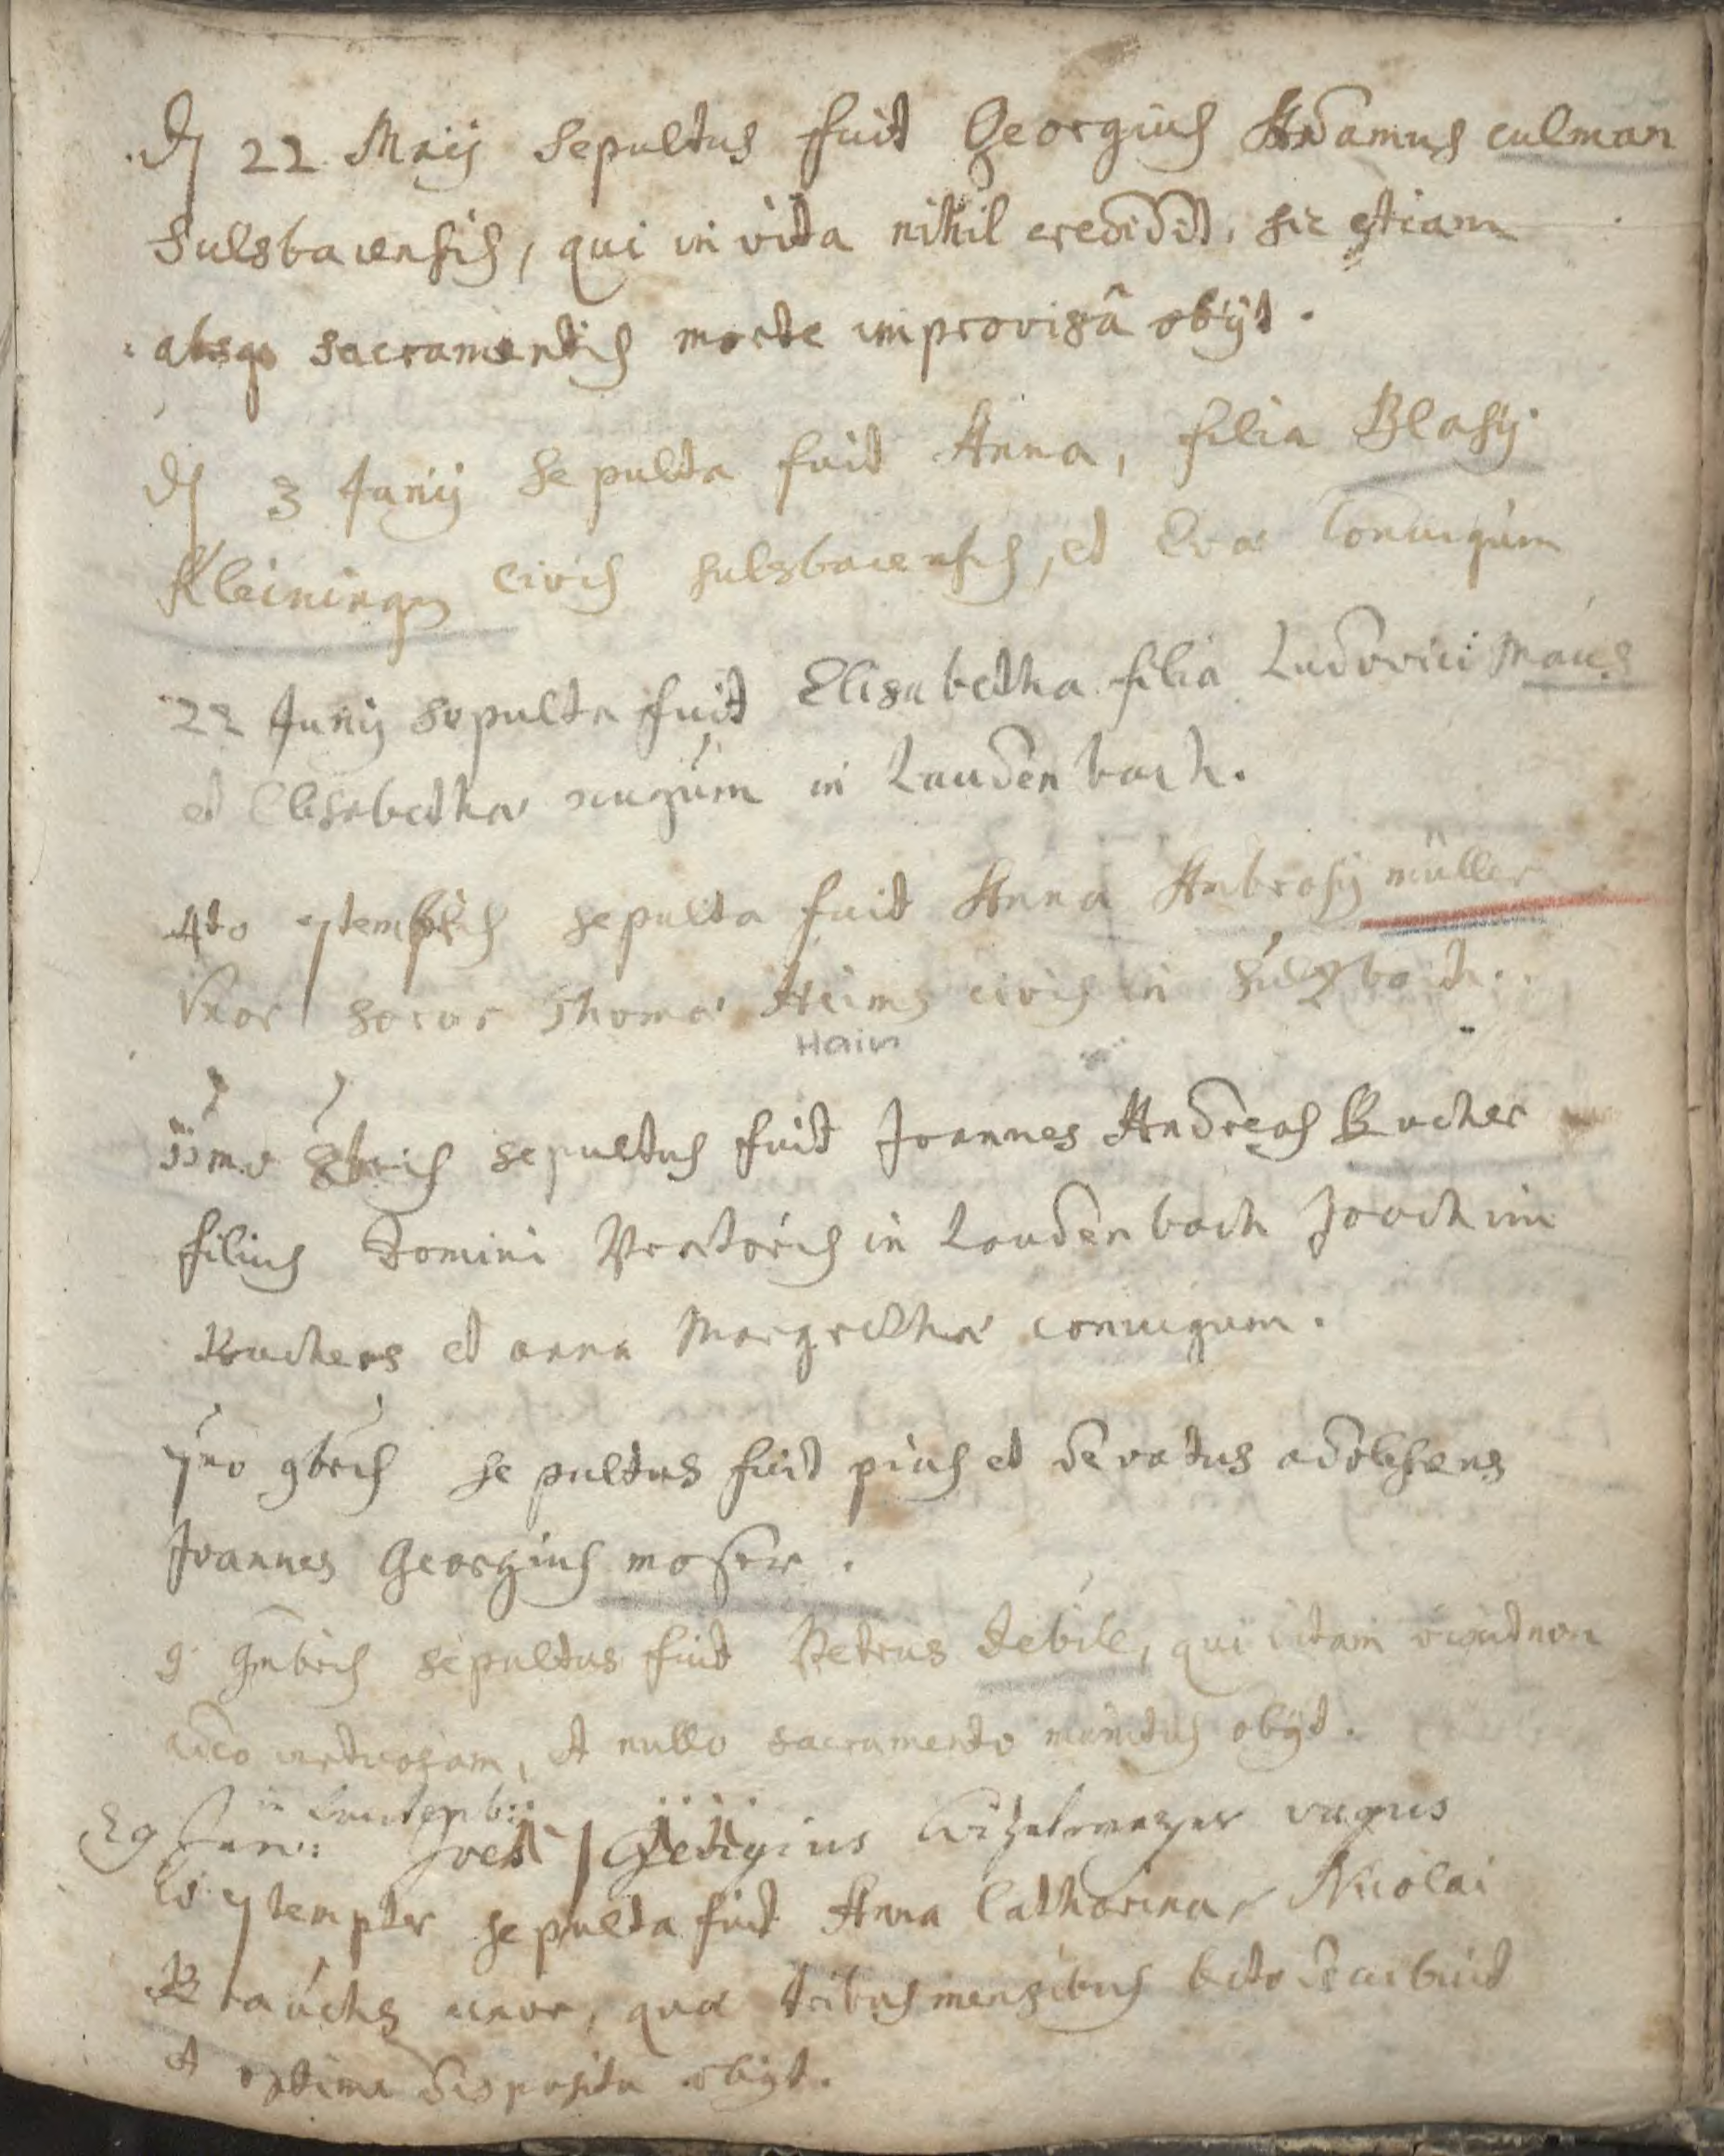 22 Maij sepultus fuit Georgius Adamus culman
Sulsbacensis, qui in vita nihil credidit, sic etiam
absq sacramentis morte improvisâ obijt.
3 Junij sepulta fuit Anna, filia Blasij
Kleinings civis sulsbacensis, et Evae Coniugum
22 Junij sepulta fuit Elisabetha filia Ludovici Maus
et Elisabethae iugum in Laudenbach.
4to 7tembris sepulta fuit Anna Ambrosij müller
Uxor socrus Thomae Heims civis in Sulzbach.
Hain
8bris sepultus fuit Joannes Andreas Bucher
filius Domini Praetoris in Laudenbach Joachim
Buchers et anna Margrethae coniugum.
9bris sepultus fuit pius et devotus adolescens
Joannes Georgius moser.
9 9mbris sepultus fuit Petrus Debile, qui vitam vixit non
adeo virtuosam, et nullo sacramento munitus obijt.
in Lautenb:
29 Jan: Georgius vagus
7tember sepulta fuit Anna Catharina, Nicolai
Brauchs uxor, quae tribus mensibus lecto decubuit
et optime disposita obijt.